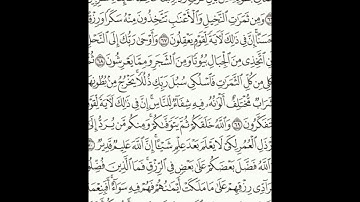 وَمِن ثَمَرَٰتِ ٱلنَّخِيلِ وَٱلْأَعْنَٰبِ تَتَّخِذُونَ مِنْهُ سَكَرًا وَرِزْقًا
حَسَنًا إِنَّ فِى ذَٰلِكَ لَءَايَةً لِّقَوْمٍ يَعْقِلُونَ ٦٧ وَأَوْحَىٰ رَبُّكَ إِلَى ٱلنَّحْلِ
أَنِ ٱتَّخِذِى مِنَ ٱلْجِبَالِ بُيُوتًا وَمِنَ ٱلشَّجَرِ وَمِمَّا يَعْرِشُونَ ٦٨
كُلِى مِن كُلِّ ٱلثَّمَرَٰتِ فَٱسْلُكِى سُبُلَ رَبِّكِ ذُلُلًا يَخْرُجُ مِنۢ بُطُونِهَا
شَرَابٌ مُّخْتَلِفٌ أَلْوَٰنُهُۥ فِيهِ شِفَآءٌ لِّلنَّاسِ إِنَّ فِى ذَٰلِكَ لَءَايَةً لِّقَوْمٍ
يَتَفَكَّرُونَ ٦٩ وَٱللَّهُ خَلَقَكُمْ ثُمَّ يَتَوَفَّىٰكُمْ وَمِنكُم مَّن يُرَدُّ إِلَىٰٓ
أَرْذَلِ ٱلْعُمُرِ لِكَىْ لَا يَعْلَمَ بَعْدَ عِلْمٍ شَيْـًٔا إِنَّ ٱللَّهَ عَلِيمٌ قَدِيرٌ
وَٱللَّهُ فَضَّلَ بَعْضَكُمْ عَلَىٰ بَعْضٍ فِى ٱلرِّزْقِ فَمَا ٱلَّذِينَ فُضِّلُوا۟
بِرَآدِّى رِزْقِهِمْ عَلَىٰ مَا مَلَكَتْ أَيْمَٰنُهُمْ فَهُمْ فِيهِ سَوَآءٌ أَفَبِنِعْمَةِ